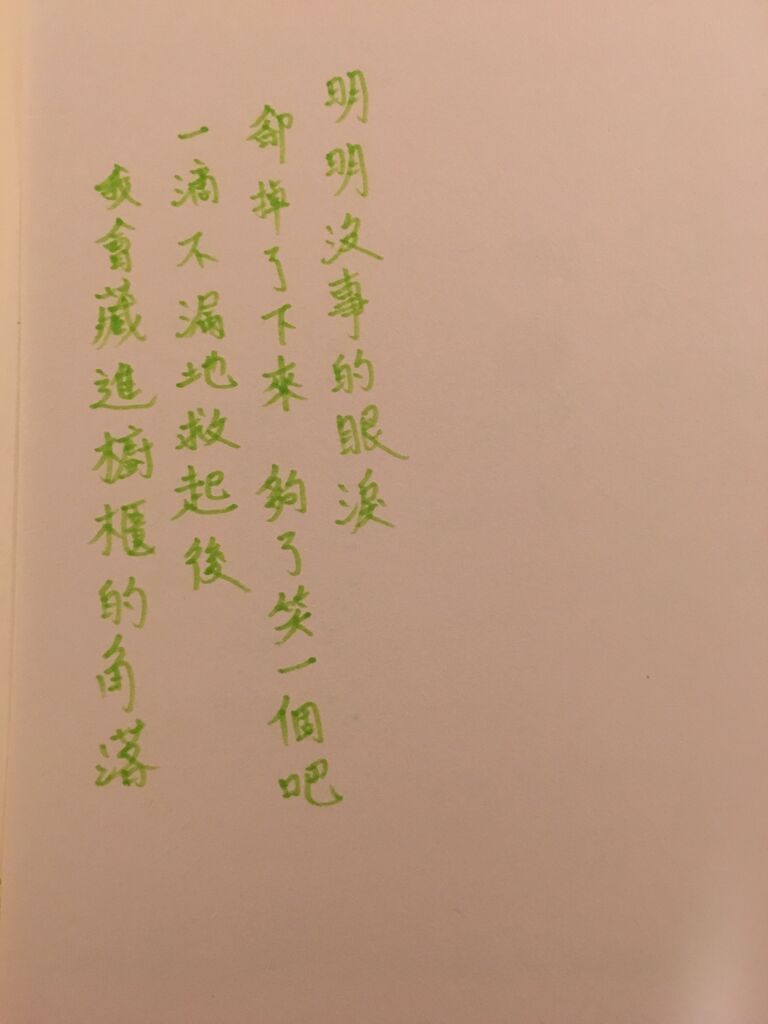 明明沒事的眼淚
卻掉了下來 夠了笑一個吧
一滴不漏地救起後
我會藏進櫥櫃的角落